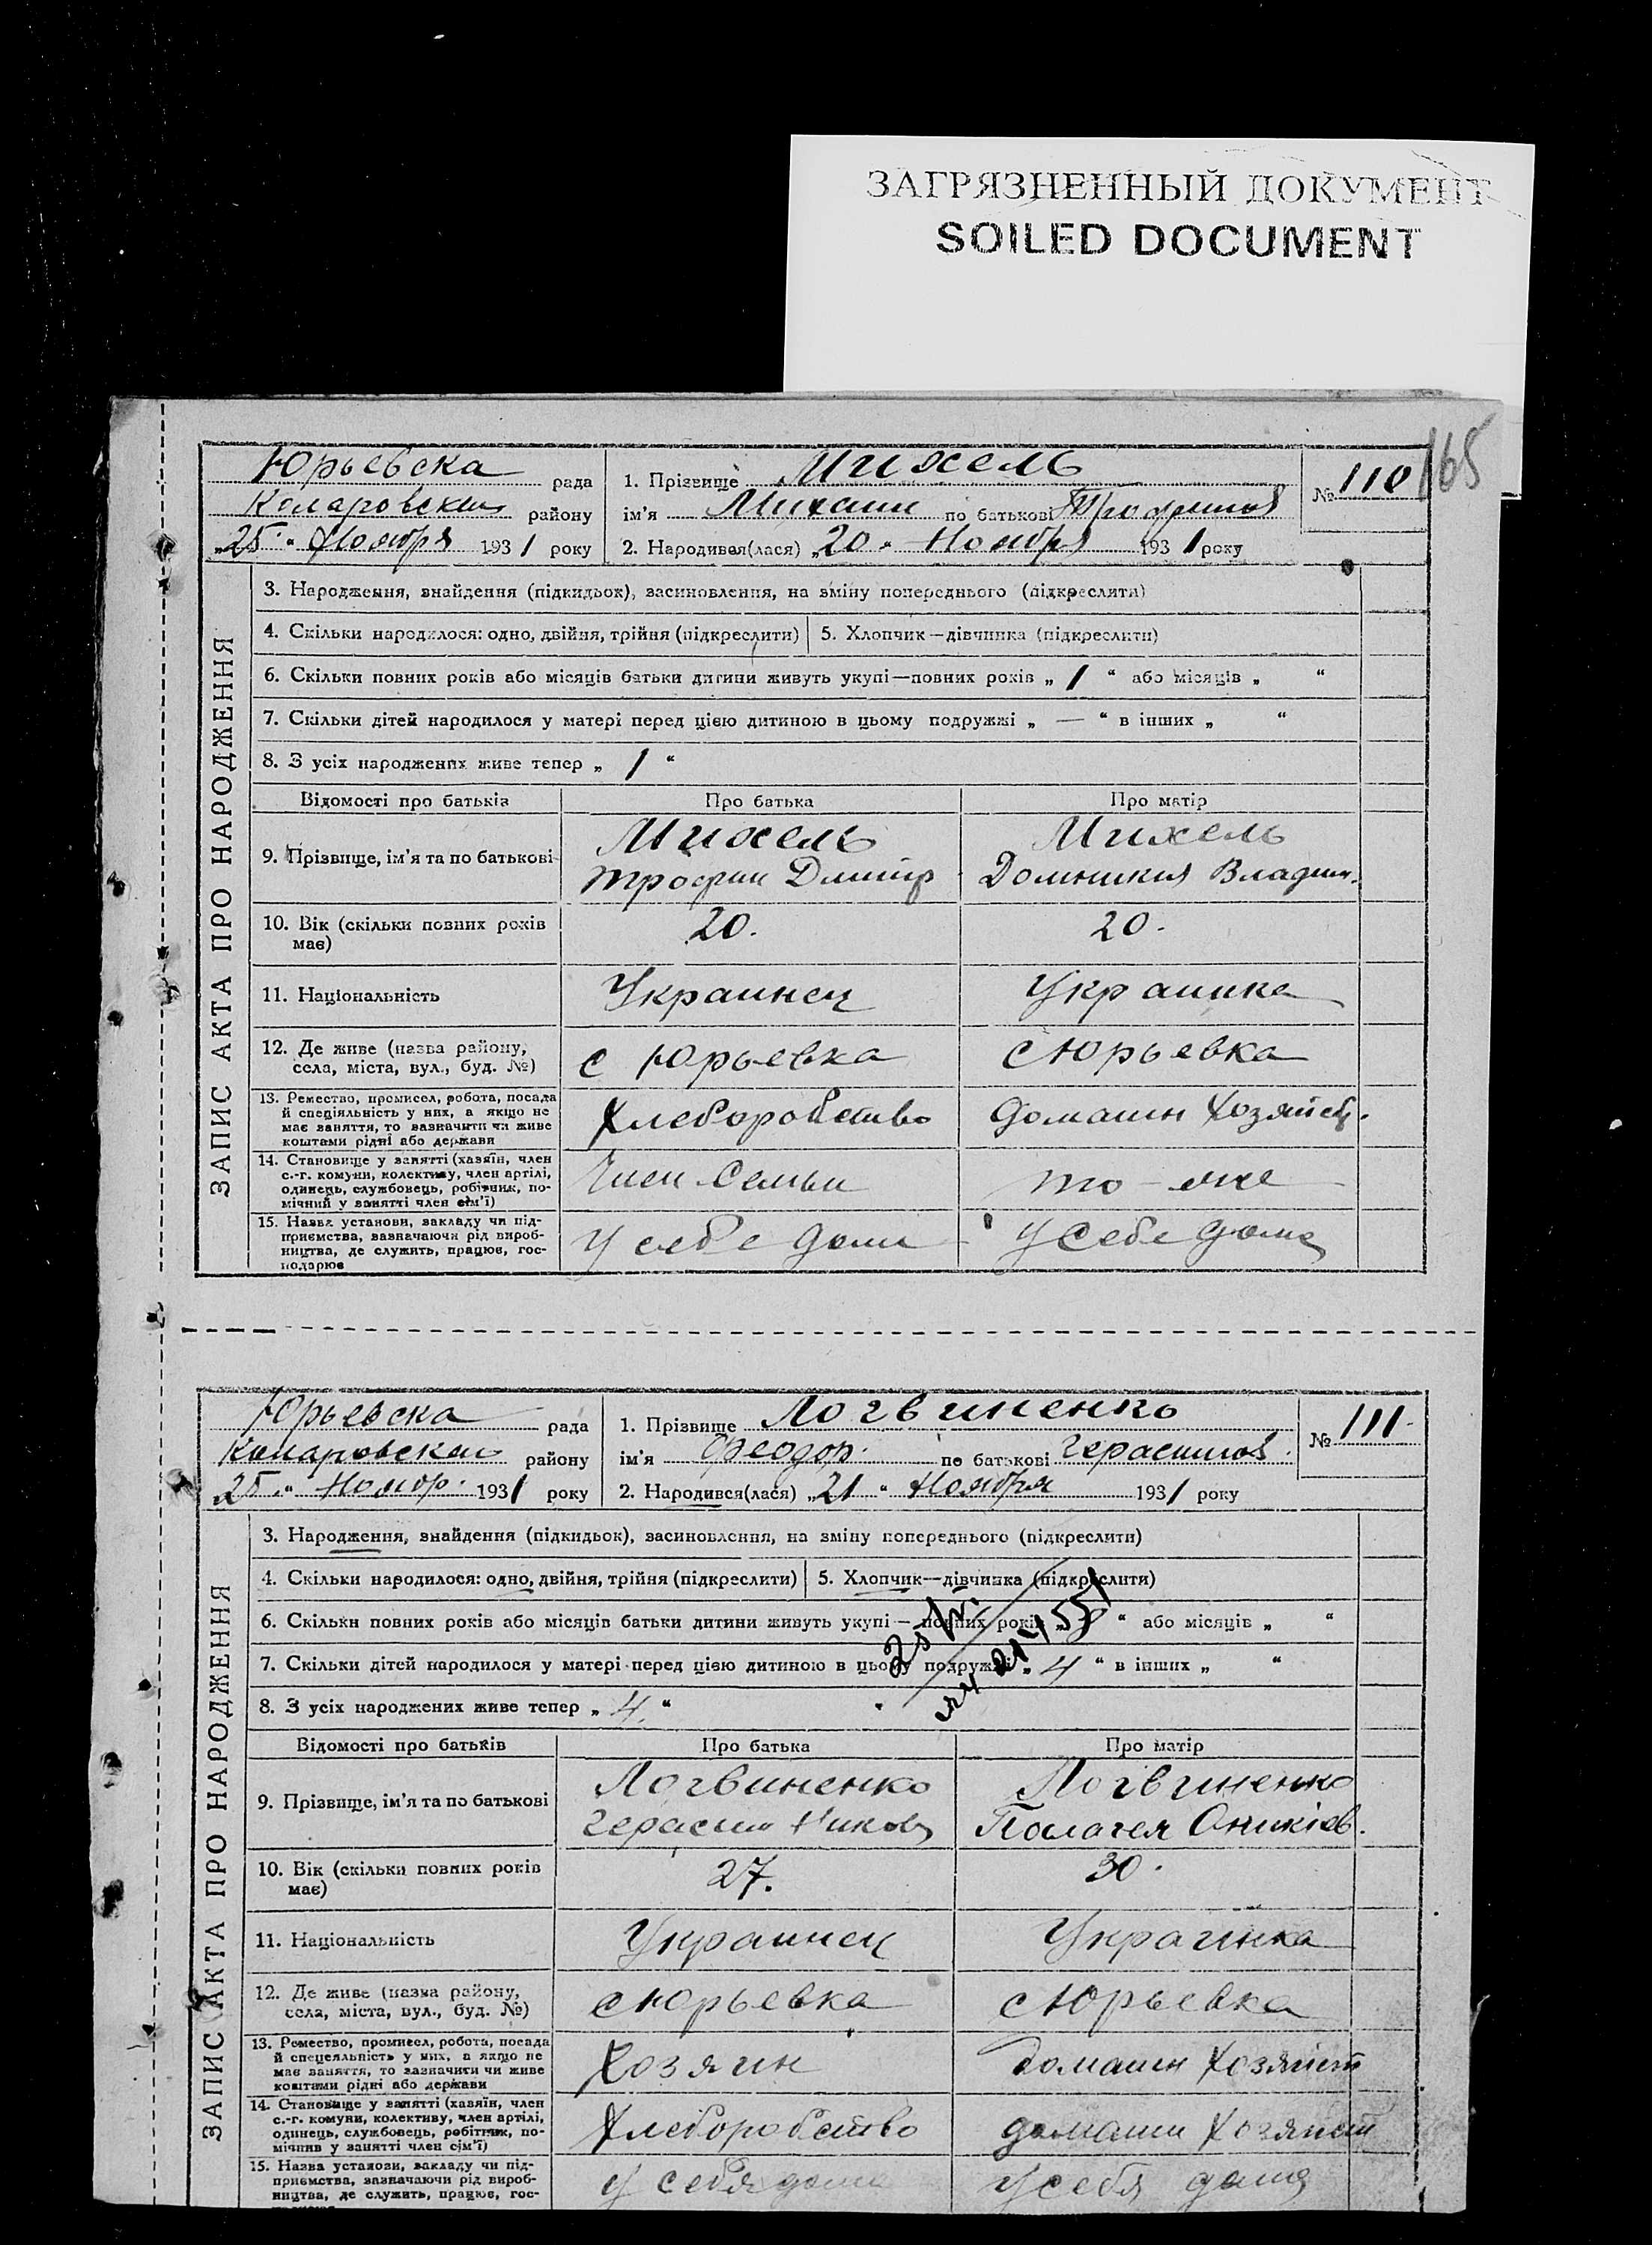 ЗАГРЯЗНЕННЫЙ ДОКУМЕНТ
SOILED DOCUMENT
165
Юрьевска рада
Коларовский району
„25“ Ноября 1931 року
1. Прізвище Михель
ім'я Михаил по батькові Трофимов
2. Народився(лася) „20“ Ноября 1931 року
№ 110
ЗАПИС АКТА ПРО НАРОДЖЕННЯ
3. Народження, знайдення (підкидьок), засиновлення, на зміну попереднього (підкреслити)
4. Скільки народилося: одно, двійня, трійня (підкреслити) 5. Хлопчик—дівчинка (підкреслити)
6. Скільки повних років або місяців батьки дитини живуть укупі—повних років „ 1 “ або місяців „ “
7. Скільки дітей народилося у матері перед цією дитиною в цьому подружжі „ — “ в інших „ “
8. З усіх народжених живе тепер „ 1 “
Відомості про батьків Про батька Про матір
9. Прізвище, ім'я та по батькові
Михель
Трофим Дмитр
Михель
Домникия Владим.
10. Вік (скільки повних років
має)
20.
20.
11. Національність Украинец Украинка
12. Де живе (назва району,
села, міста, вул., буд. №)
с Юрьевка
с Юрьевка
13. Ремество, промисел, робота, посада
й спеціяльність у них, а якщо не
має заняття, то зазначити чи живе
коштами рідні або держави
Хлеборобство
домашн хозяйст.
14. Становище у занятті (хазяїн, член
с.-г. комуни, колективу, член артілі,
одинець, службовець, робітник, по-
мічний у занятті член сім'ї)
Член семьи
то-же
15. Назва установи, закладу чи під-
приємства, зазначаючи рід вироб-
ництва, де служить, працює, гос-
подарює
у себе дома
у себе дома
Юрьевска рада
Коларовский району
„25“ Ноябр. 1931 року
1. Прізвище Логвиненко
ім'я Феодор по батькові Герасимов
2. Народився(лася) „21“ Ноября 1931 року
№ 111
ЗАПИС АКТА ПРО НАРОДЖЕННЯ
3. Народження, знайдення (підкидьок), засиновлення, на зміну попереднього (підкреслити)
4. Скільки народилося: одно, двійня, трійня (підкреслити) 5. Хлопчик—дівчинка (підкреслити)
6. Скільки повних років або місяців батьки дитини живуть укупі — повних років „ “ або місяців „ “
7. Скільки дітей народилося у матері перед цією дитиною в цьому подружжі „ 4 “ в інших „ “
8. З усіх народжених живе тепер „ 4. “
Відомості про батьків Про батька Про матір
9. Прізвище, ім'я та по батькові
Логвиненко
Герасим Ников
Логвиненко
Палагея Оникіев.
10. Вік (скільки повних років
має)
27.
30.
11. Національність Украинец Украинка
12. Де живе (назва району,
села, міста, вул., буд. №)
с Юрьевка
с Юрьевка
13. Ремество, промисел, робота, посада
й спецеяльність у них, а якщо не
має заняття, то зазначити чи живе
коштами рідні або держави
Хозяин
домашн хозяйст
14. Становище у занятті (хазяїн, член
с.-г. комуни, колективу, член артілі,
одинець, службовець, робітник, по-
мічний у занятті член сім'ї)
Хлеборобство
домашн хозяйст
15. Назва установи, закладу чи під-
приємства, зазначаючи рід вироб-
ництва, де служить, працює, гос-
у себя дома
у себя дома